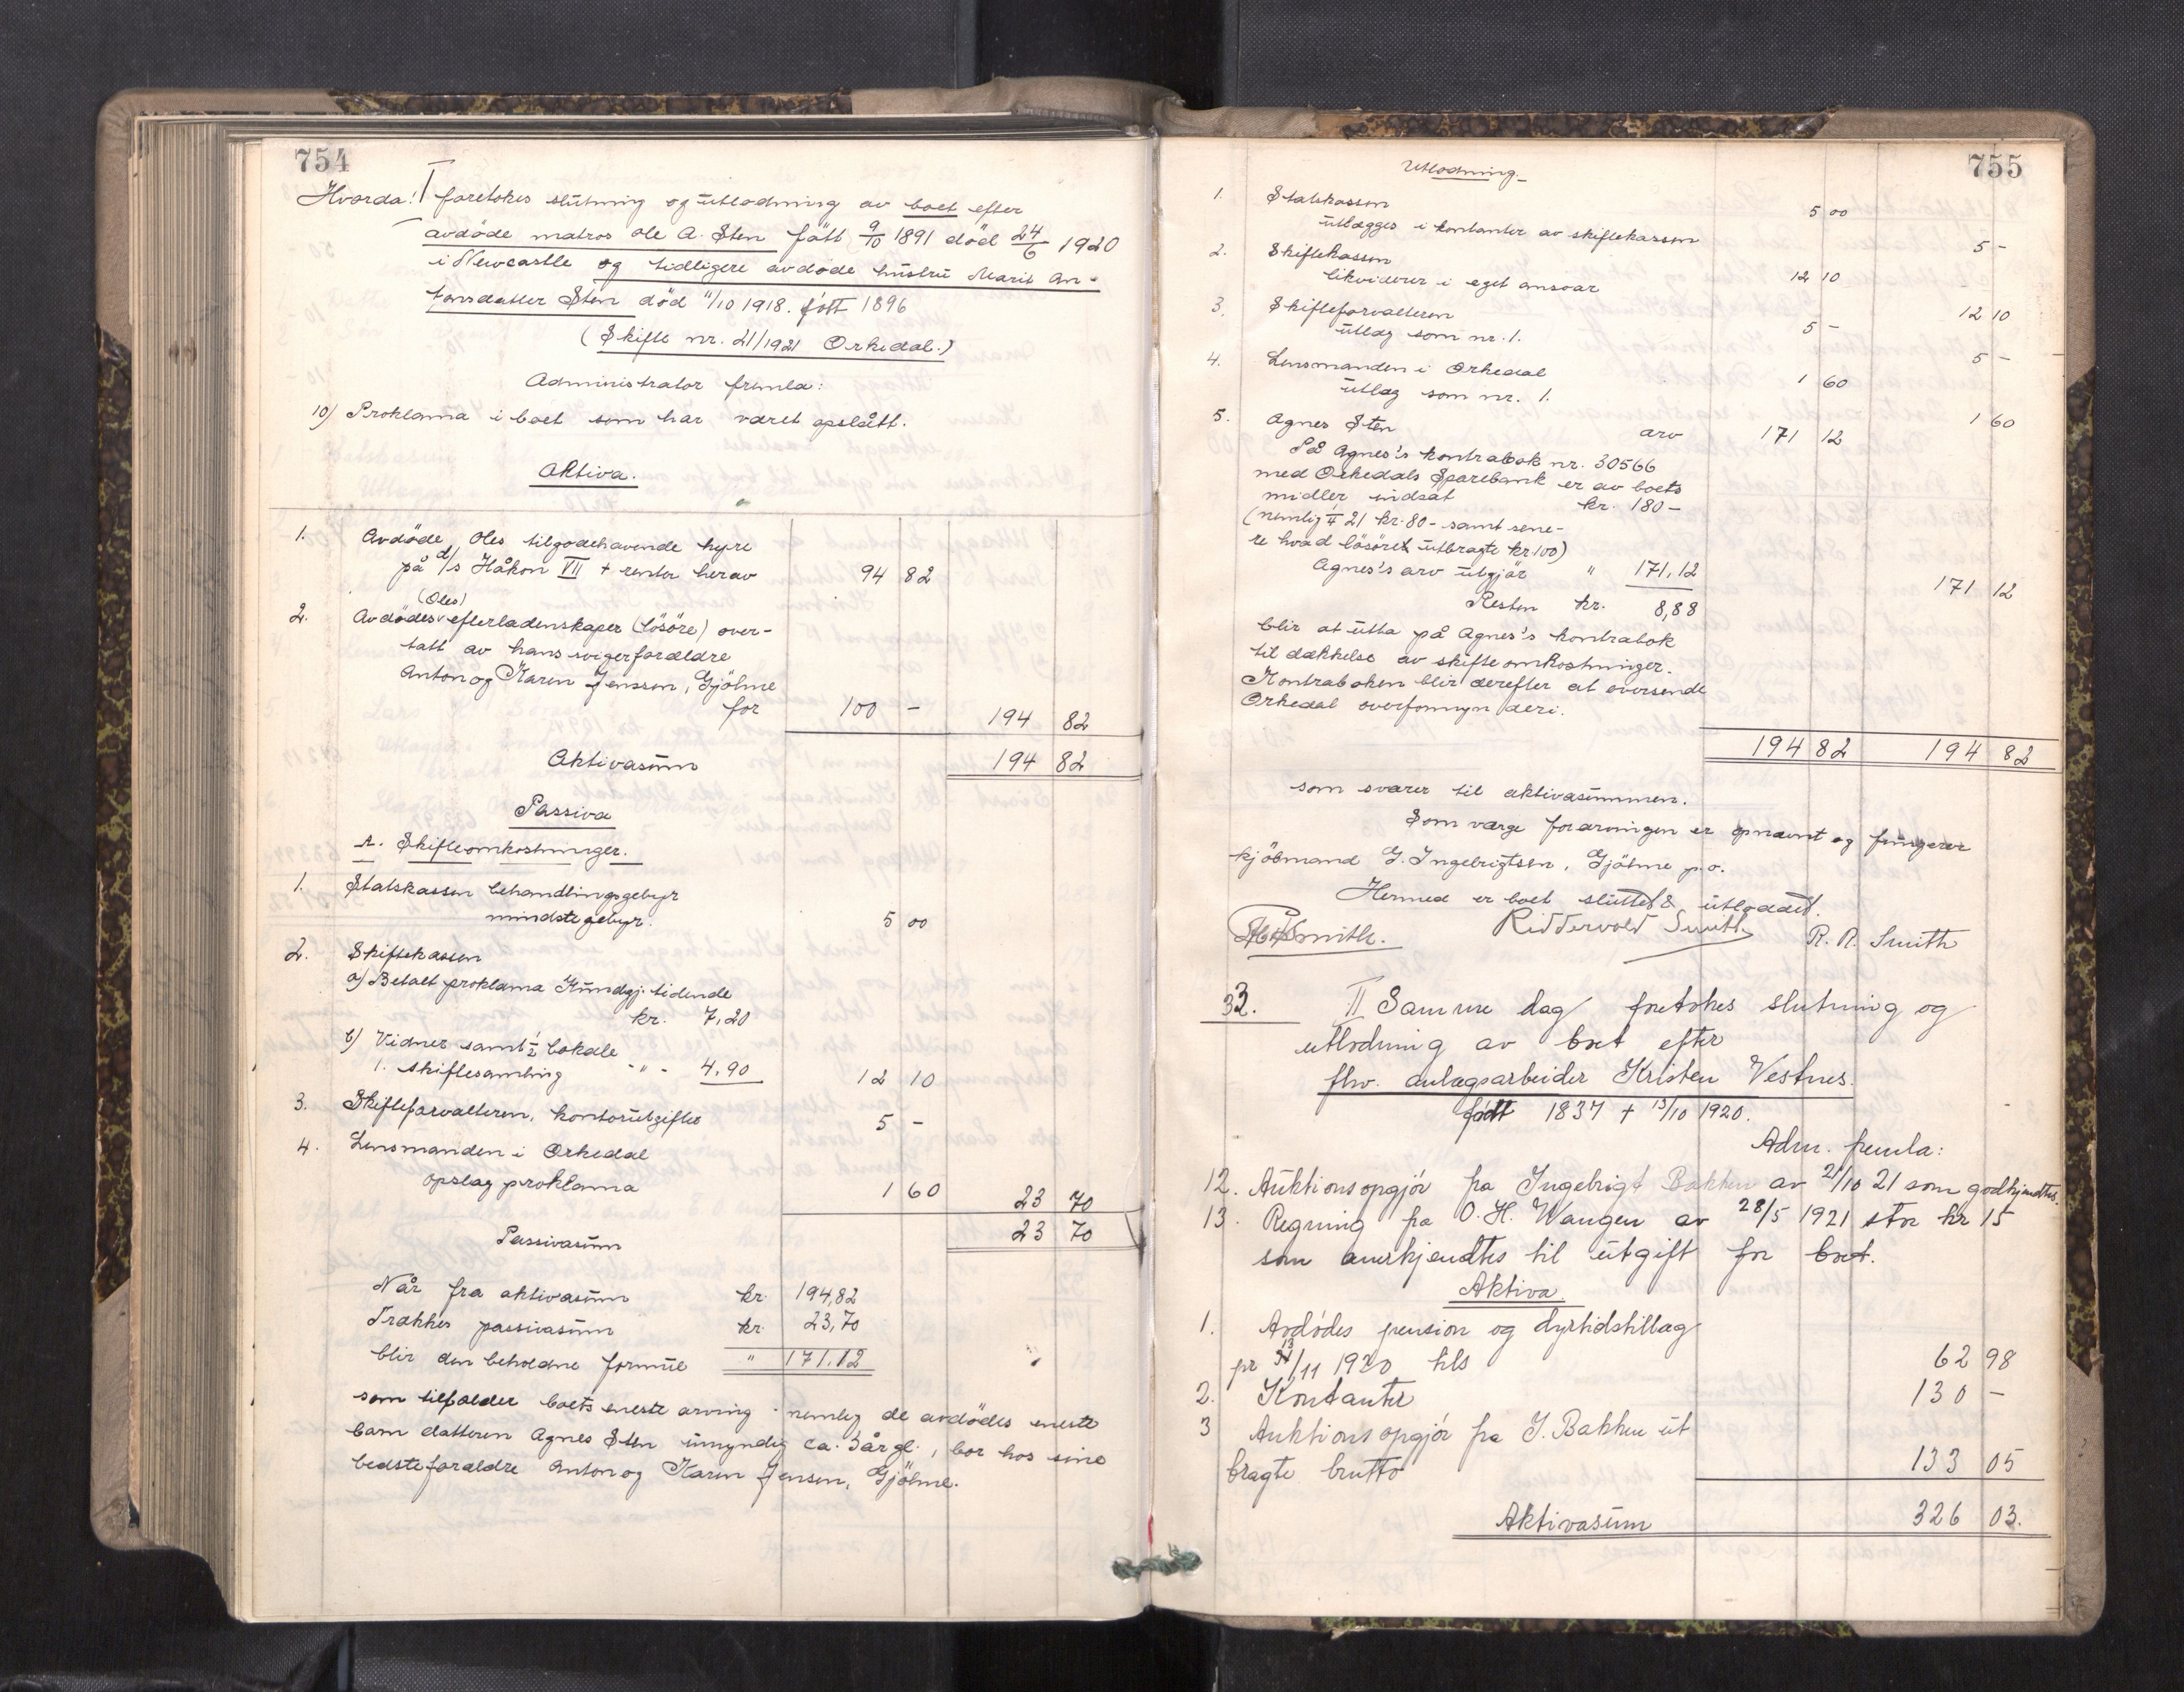 754
Hvorda: I foretokes slutning og utlodning av boet efter
avdöde matros Ole A. Sten fått 9/10 1891 död 24/6 1920
i Newcastle og tidligere avdöde hustru Marit An-
tonsdatter Sten död 11/10 1918. fött 1896
(Skifte nr. 21/1921 Orkedal.)
Administrator fremla:
10) Proklama i boet som har været opslått.
Aktiva.
1. Avdöde Oles tilgodehavende hyre
på d/s Håkon VII + renter herav 94 82
(Oles)
2. Avdödes efterladenskaper (lösöre) over-
tatt av hans svigerforældre
Anton og Karen Jenssen, Gjölme
for 100 - 194 82
Aktivasum 194 82
Passiva
A. Skifteomkostninger.
1. Statskassen behandlingsgebyr
mindstegebyr. 5 00
2. Skiftekassen
a) Betalt proklama Kundgj. tidende
kr. 7,20
b) Vidner samt 1/2 lokale
1. skiftesamling -"- 4,90 12 10
3. Skifteforvalteren, kontorutgifter 5 -
4. Lensmanden i Orkedal
opslag proklama 1 60 23 70
Passivasum 23 70
Når fra aktivasum kr. 194,82
Trækkes passivasum kr. 23,70
blir den beholdne formue " 171.12
som tilfalder boets eneste arving nemlig de avdödes eneste
barn datteren Agnes Sten umyndig ca. 3 år gl., bor hos sine
bedsteforældre Anton og Karen Jensen, Gjölme.
755
Utlodning.
1. Statskassen 5 00
utlægges i kontanter av skiftekassen 5 -
2. Skiftekassen 12 10
likviderer i eget ansvar 12 10
3. Skifteforvalteren 5 -
utlæg som nr. 1. 5 -
4. Lensmanden i Orkedal 1 60
utlæg som nr. 1. 1 60
5. Agnes Sten arv 171 12
På Agnes's kontrabok nr. 30566
med Orkedals Sparebank er av boets
midler indsat kr. 180 -
(nemlig 1/4 21 kr. 80 - samt sene-
re hvad lösöret utbragte kr 100)
Agnes's arv utgjör " 171,12 171 12
Resten kr. 8,88
blir at utta på Agnes's kontrabok
til dækkelse av skifteomkostninger.
Kontraboken blir derefter at oversende
Orkedal overformynderi.
194 82 194 82
som svarer til aktivasummen.
Som værge for arvingen er opnævnt og fungerer
kjöbmand G. Ingebrigtsen, Gjölme p.o.
Hermed er boet sluttet & utloddet.
Smith. Riddervold Smith R. R. Smith
33. II Samme dag foretokes slutning og
utlodning av boet efter
fhv. anlægsarbeider Kristen Vestnes.
født 1837 + 13/10 1920.
Adm. fremla:
12. Auktionsopgjör fra Ingebrigt Bakken av 21/10 21 som godkjendtes.
13. Regning fra O. H. Wangen av 28/5 1921 stor kr 15
som anerkjendtes til utgift for boet.
Aktiva.
1. Avdödes pension og dyrtidstillæg
pr 13/11 1920 tils 62 98
2. Kontanter 130 -
3 Auktionsopgjör fra I. Bakken ut
bragte brutto 133 05
Aktivasum 326 03.